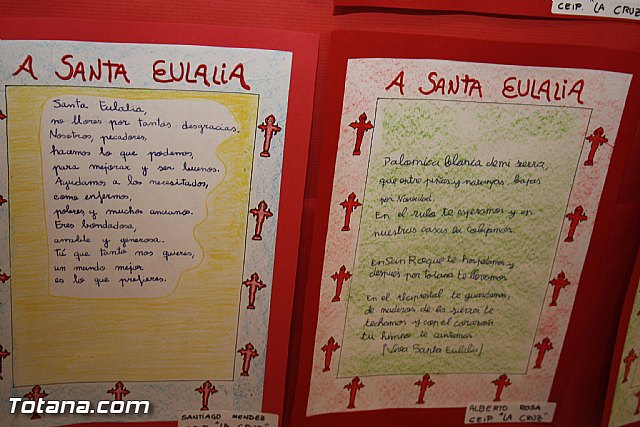 CEIP. "LA CRUZ"
A SANTA EULALIA
Santa Eulalia,
no llores por tantas desgracias.
Nosotros, pecadores,
hacemos lo que podemos,
para mejorar y ser buenos.
Ayudamos a los necesitados,
como enfermos,
pobres y muchos ancianos.
Eres bondadosa,
amable y generosa.
Tú que tanto nos quieres,
un mundo mejor
es lo que prefieres.
SANTIAGO MENDEZ
CEIP. "LA CRUZ"
A SANTA EULALIA
Palomica blanca de mi sierra,
que entre pinos y naranjos, bajas
por Navidad.
En el rubo te esperamos y en
nuestras casas la cobijamos.
En San Roque te hospedamos y
despues por Totana te llevamos
En el altar te guardamos,
de maderos de la sierra te
techamos y con el corazon
tu himno te cantamos
¡Viva Santa Eulalia!
ALBERTO ROSA
CEIP "LA CRUZ"
Totana.com